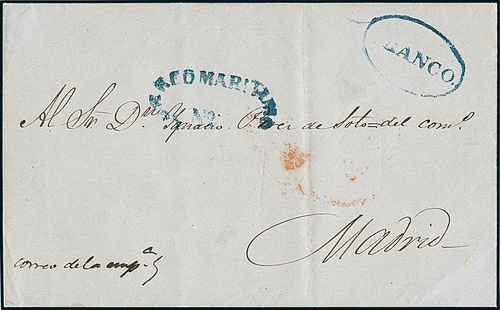 FRANCO.
CORREO MARITIMO
Nº
Al Sr. Dn. Ygnacio de Soto = del comº.
Madrid
correo de la empª.